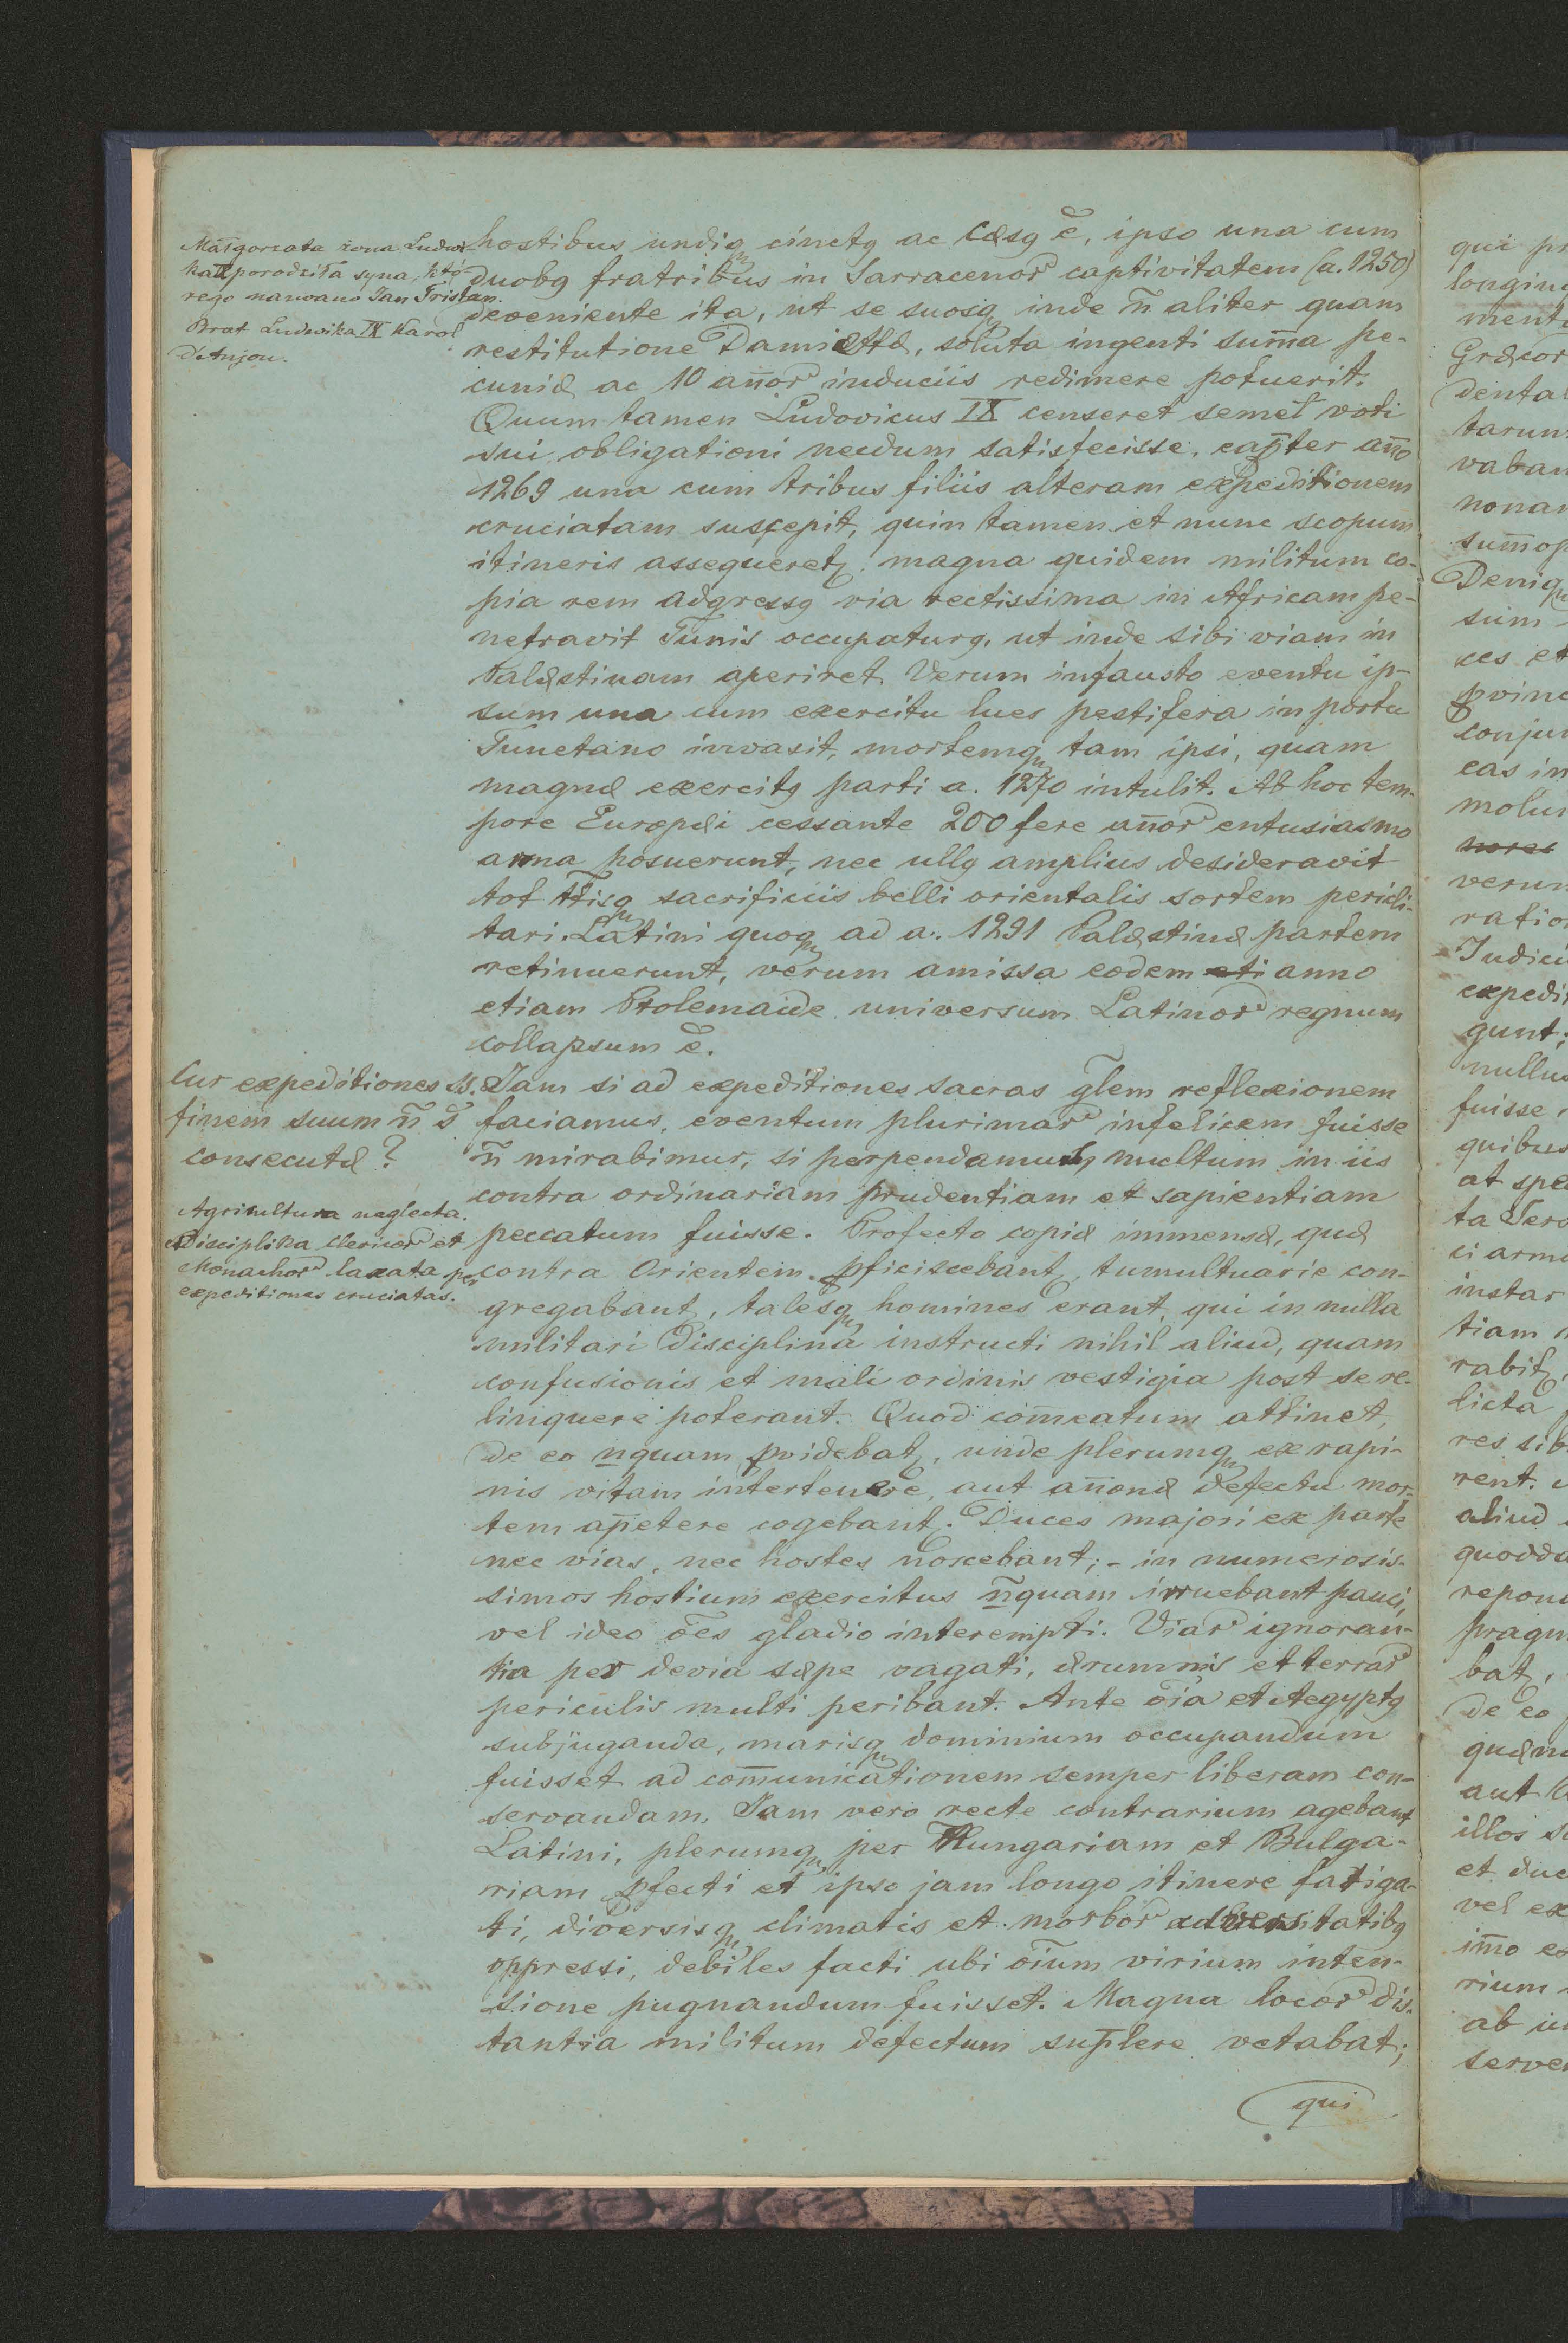 Małgorzata żona Ludwi
ka IX porodziła syna, któ
rego nazwano Jan Tristan.
Brat Ludwika IX Karol
d'Anjou.
hostibus undiq cinctg ac cæsg ē, ipso una cum
duobg fratribus in Sarracenor captivitatem (a. 1250)
deveniente ita, ut se suosq inde n̄ aliter quam
restitutione Damiettæ, soluta ingenti sum̄a pe-
cuniæ ac 10 an̄or induciis redimere potuerit.
Quum tamen Ludovicus IX censeret semet voti
sui obligationi necdum satisfecisse, cap̄ter an̄o
1269 una cum tribus filiis alteram expeditionem
cruciatam suscepit, quin tamen et nunc scopum
itineris assequeret, magna quidem militum co-
pia rem adgressg via rectissima in Africam pe-
netravit Tunis occupaturg, ut inde sibi viam in
Palæstinam aperiret. Verum infausto eventu ip-
sum una cum exercitu lues pestifera in portu
Tunetano invasit, mortemq tam ipsi, quam
magnæ exercitg parti a. 1270 intulit. Ab hoc tem-
pore Europæi cessante 200 fere an̄or entusiasmo
arma posuerunt, nec ullg amplius desideravit
tot t̄tisq sacrificiis belli orientalis sortem pericli-
tari. Latini quoq ad a. 1291 Palæstinæ partem
retinuerunt, verum amissa eodem eti anno
etiam Ptolemaide universum Latinor regnum
collapsum ē.
Cur expeditiones ss.
finem suum n̄ s̄
consecutæ?
Jam si ad expeditiones sacras gl̄em reflexionem
faciamus, eventum plurimar infelicem fuisse
n̄ mirabimur, si perpendamus multum in iis
contra ordinariam prudentiam et sapientiam
Agricultura neglecta.
Disciplina clericor et
Monachor laxata per
expeditiones cruciatas.
peccatum fuisse. Profecto copiæ immensæ, quæ
contra Orientem pficiscebant, tumultuarie con-
gregabant, talesq homines erant, qui in nulla
militari disciplina instructi nihil aliud, quam
confusionis et mali ordinis vestigia post se re-
linquere poterant. Quod com̄eatum attinet,
de eo nquam pvidebat, unde plerumq ex rapi-
nis vitam intertenere, aut an̄onæ defectu mor-
tem ap̄etere cogebant. Duces majori ex parte
nec vias, nec hostes noscebant; - in numerosis-
simos hostium exercitus n̄quam irruebant pauci,
vel ideo ōes gladio interempti. Viar ignoran-
tia per devia sæpe vagati, ærumnis et terrar
periculis multi peribant. Ante ōia et Aegyptg
subjuganda, marisq dominium occupandum
fuisset ad com̄unicationem semper liberam con-
servandam. Jam vero recte contrarium agebant
Latini, plerumq per Hungariam et Bulga-
riam pfecti et ipso jam longo itinere fatiga-
ti, diversisq climatis et morbor adversitatibg
oppressi, debiles facti ubi ōium virium inten-
sione pugnandum fuisset. Magna locor dis-
tantia militum defectum sup̄lere vetabat;
qui